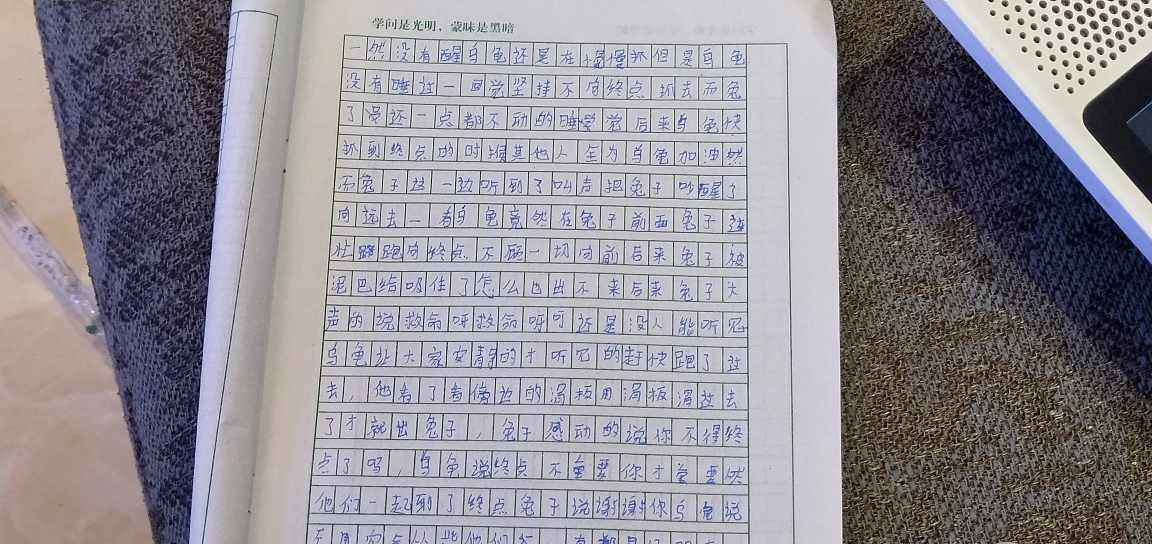 学问是光明，蒙昧是黑暗
一然没有醒乌龟还是在慢慢抓但是乌龟
没有睡过一回觉坚持不向终点抓去而兔
了还一点都不动的睡觉后来乌龟快
抓到终点的时候其他人全为乌龟加油然
而兔子这一边听到了叫声把兔子吵醒了
向远去一看乌龟竟然在兔子前面兔子连
忙跑向终点不顾一切向前后来兔子被
泥巴给吸住了怎么也出不来后来兔子大
声的说救命呀救命呀可还是没人能听见
乌龟让大家安静的才听见的赶快跑了过
去，他看了看傍边的滑板用滑板滑过去
了才就出兔子，兔子感动的说你不得终
点了吗，乌龟说终点不重要你才重要然
他们一起到了终点兔子说谢谢你乌龟说